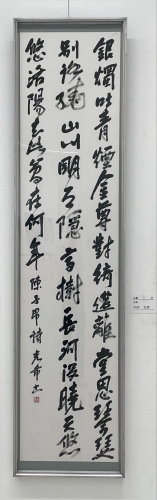 銀燭吐青煙金尊對綺筵離堂思琴瑟
別路繞山川明月隱高樹長河没曉天悠
悠洛陽去此會在何年陳子昂詩